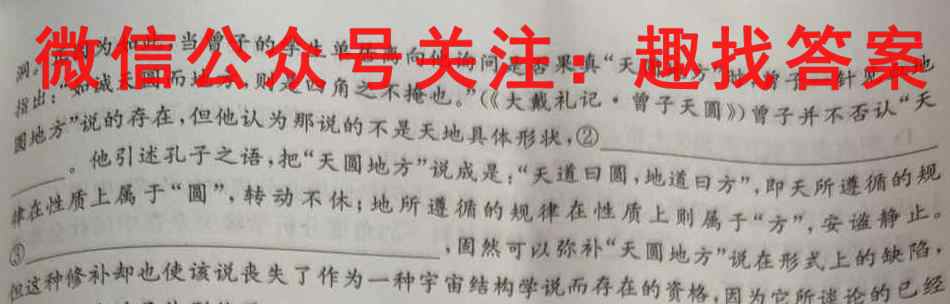 微信公众号关注：趣找答案
洞。正因为如此，当曾子的学生单居离向他询问是否果真“天圆地方”时，曾子一针见血地
指出：“如诚天圆而地方，则是四角之不掩也。”（《大戴礼记·曾子天圆》）曾子并不否认“天
圆地方”说的存在，但他认为那说的不是天地具体形状，②
。他引述孔子之语，把“天圆地方”说成是：“天道曰圆，地道曰方”，即天所遵循的规
律在性质上属于“圆”，转动不休；地所遵循的规律在性质上则属于“方”，安谧静止。
③，固然可以弥补“天圆地方”说在形式上的缺陷，
但这种修补却也使该说丧失了作为一种宇宙结构学说而存在的资格，因为它所谈论的已经